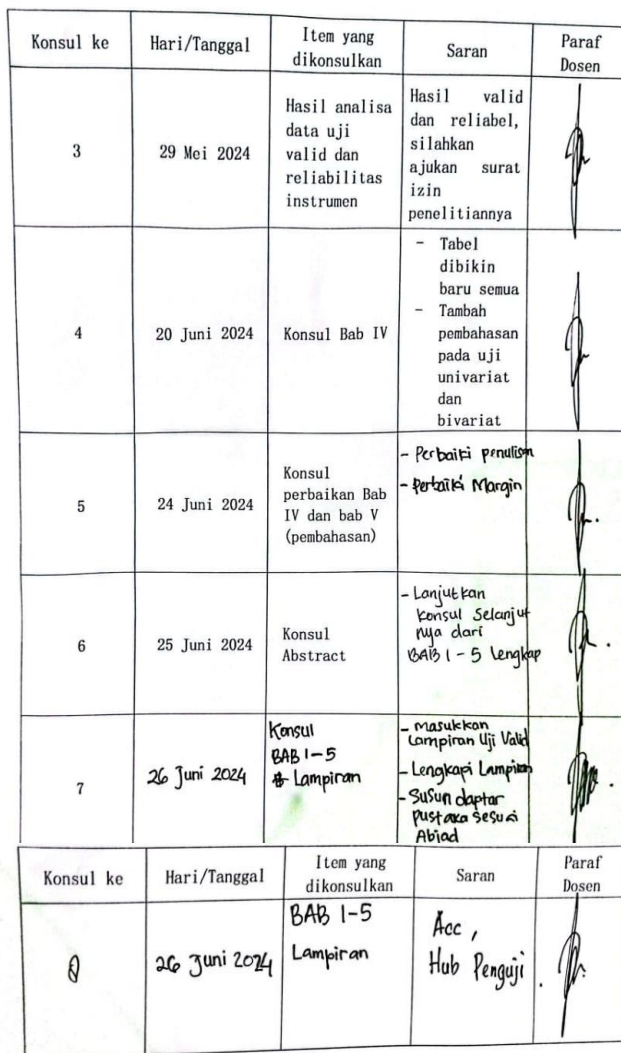 Konsul ke
Hari/Tanggal
Item yang
dikonsulkan
Saran
Paraf
Dosen
3
29 Mei 2024
Hasil analisa
data uji
valid dan
reliabilitas
instrumen
Hasil valid
dan reliabel,
silahkan
ajukan surat
izin
penelitiannya
4
20 Juni 2024
Konsul Bab IV
- Tabel
dibikin
baru semua
- Tambah
pembahasan
pada uji
univariat
dan
bivariat
5
24 Juni 2024
Konsul
perbaikan Bab
IV dan bab V
(pembahasan)
- Perbaiki penulisan
- Perbaiki Margin
6
25 Juni 2024
Konsul
Abstract
- Lanjutkan
Konsul Selanjut
nya dari
BAB 1 - 5 lengkap
7
26 Juni 2024
Konsul
BAB 1-5
Lampiran
- masukkan
Lampiran Uji Valid
- Lengkapi Lampiran
- Susun daptar
pustaka sesuai
Abjad
Konsul ke
Hari/Tanggal
Item yang
dikonsulkan
Saran
Paraf
Dosen
26 Juni 2024
BAB 1-5
Lampiran
Acc,
Hub Penguji